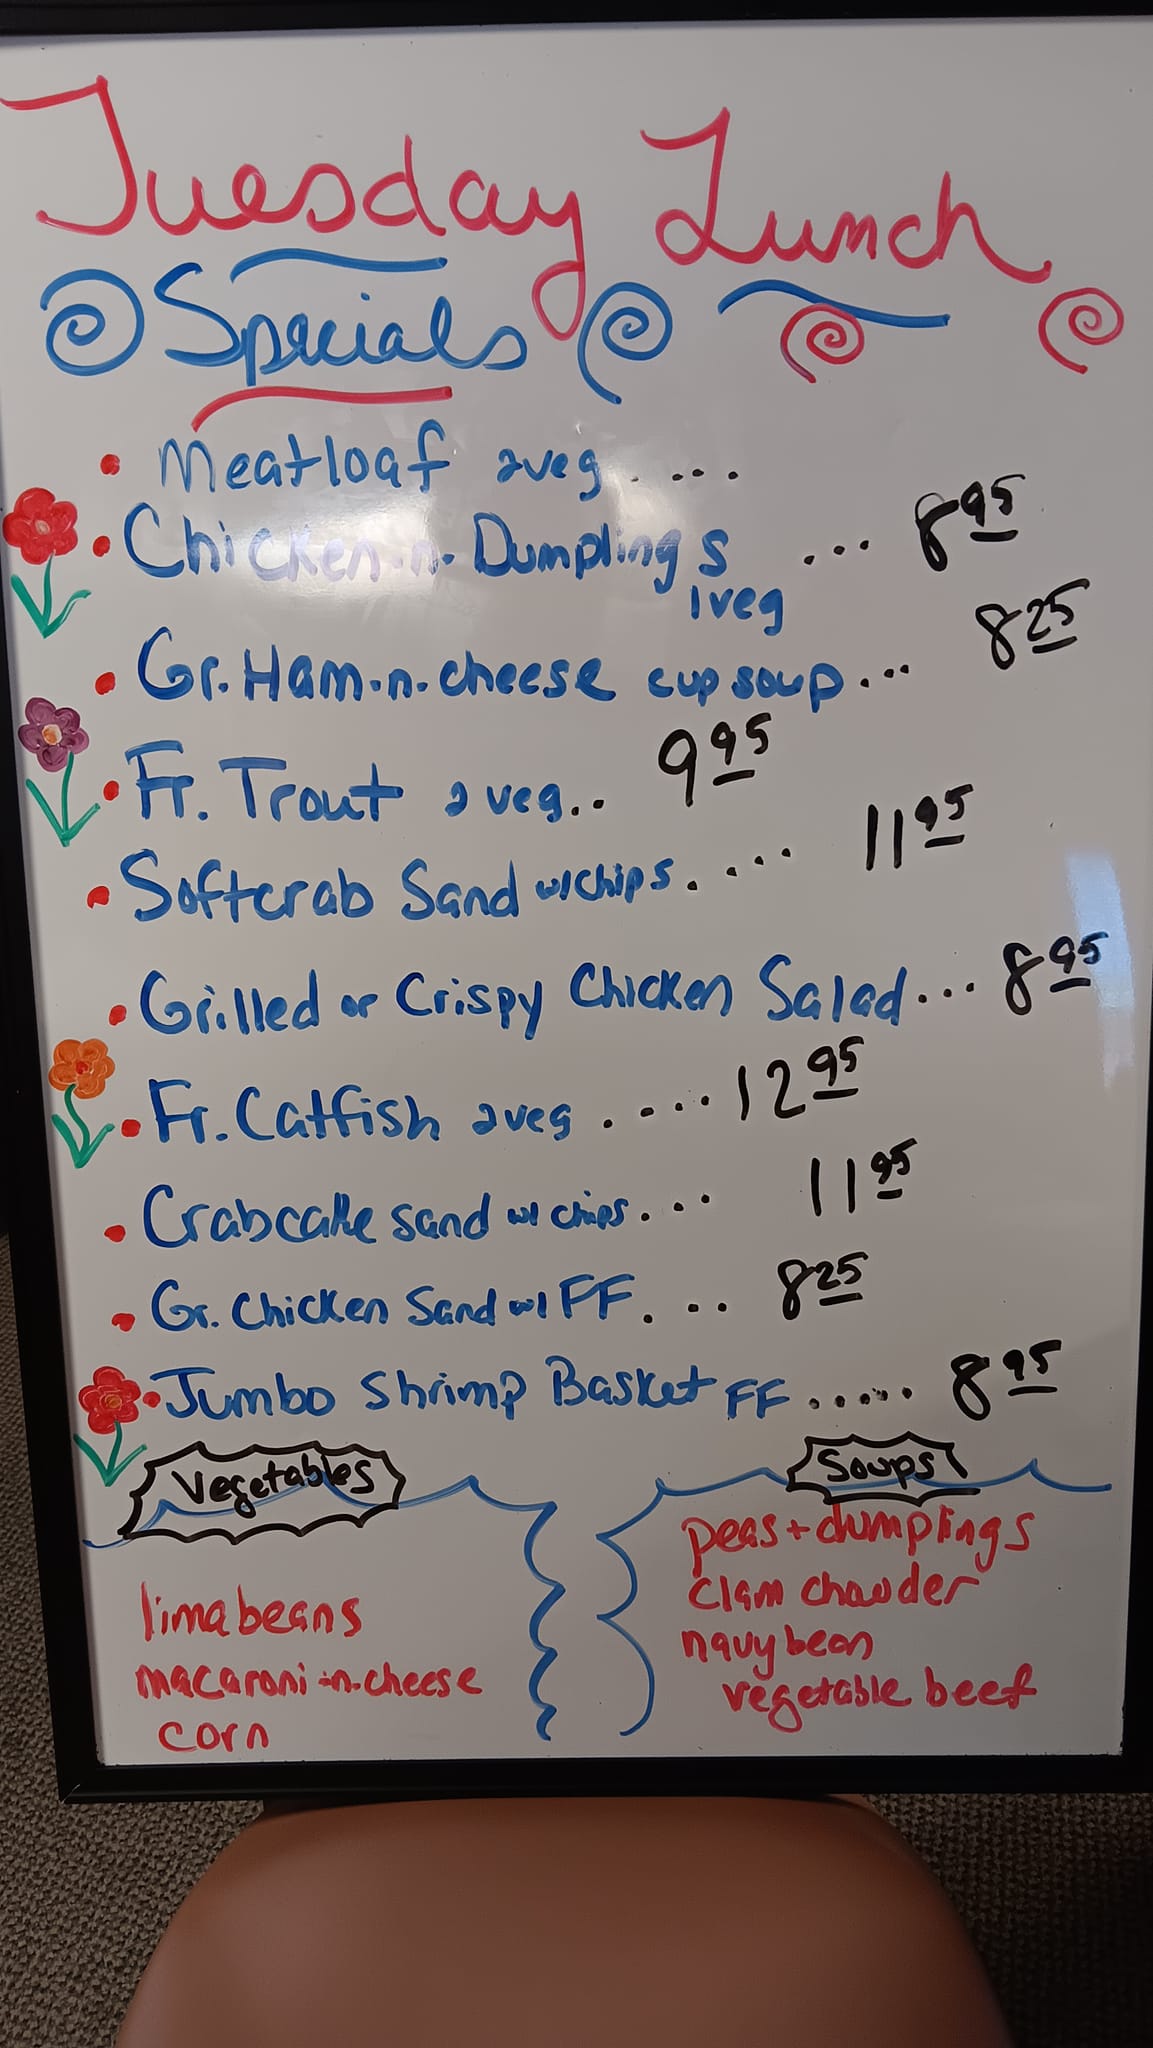 Tuesday Lunch
Specials
• Meatloaf 2veg.....
• Chicken-n-Dumplings 1veg ... 8.95
• Gr. Ham-n-cheese cup soup... 8.25
• Fr. Trout 2 veg.. 9.95
• Softcrab Sand w/chips..... 11.95
• Grilled or Crispy Chicken Salad... 8.95
• Fr. Catfish 2veg ..... 12.95
• Crabcake sand w/ chips.... 11.95
• Gr. Chicken Sand w/ FF... 8.25
• Jumbo Shrimp Basket FF ..... 8.95
Vegetables
lima beans
macaroni-n-cheese
corn
Soups
peas + dumplings
clam chowder
navy bean
vegetable beef